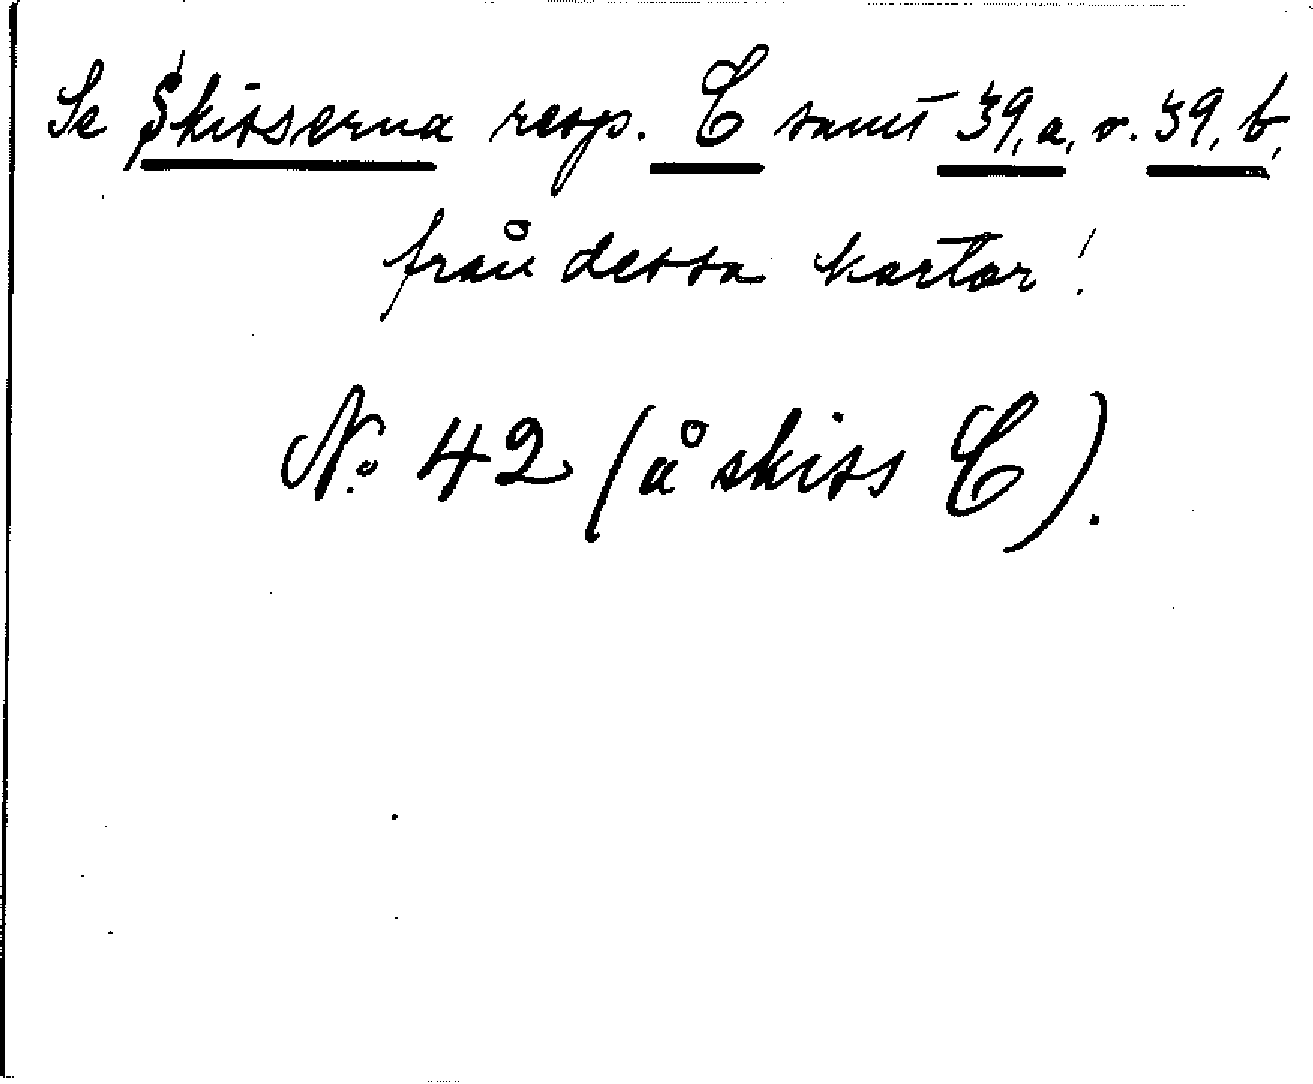 Se Skisserna resp. C samt 39, a, o. 39, b,
från dessa kartor!
No. 42 (å skiss C).